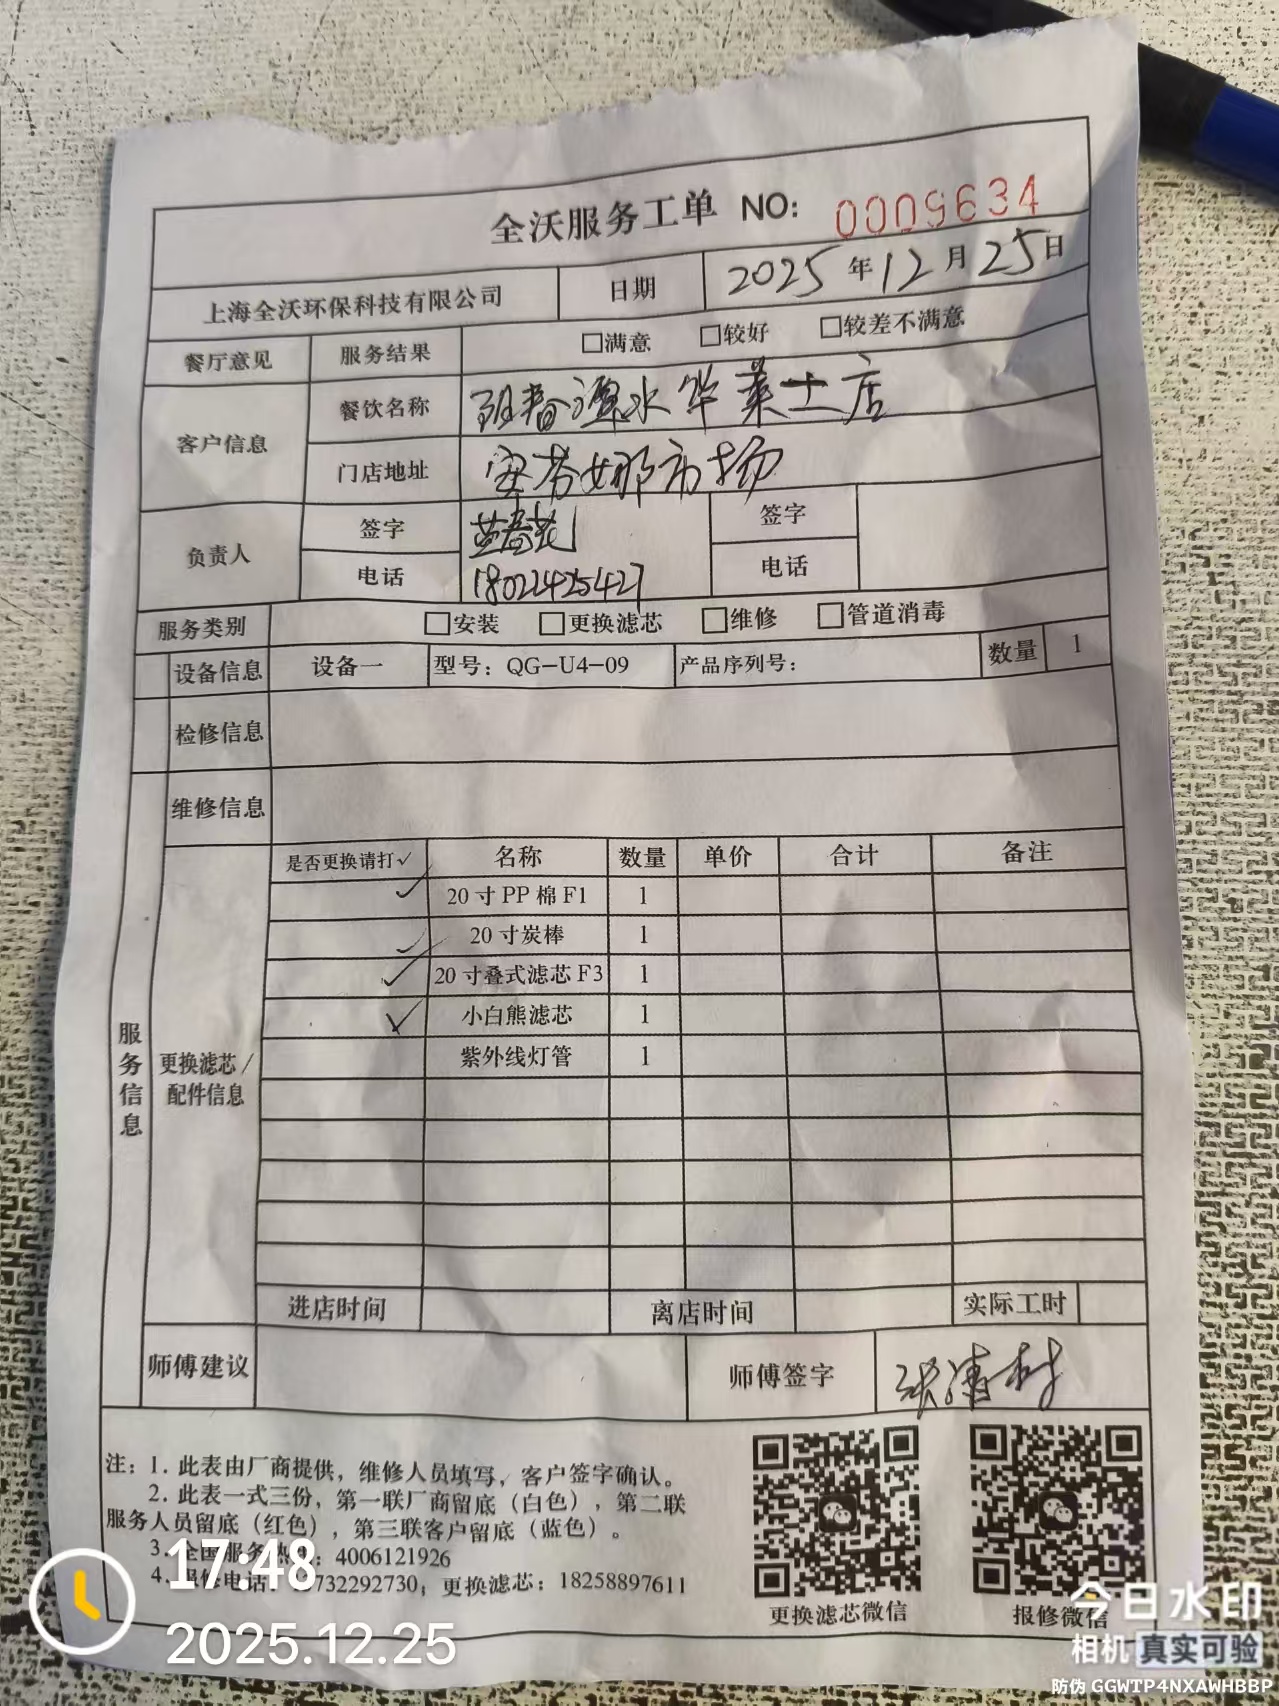 全沃服务工单 NO: 0009634
上海全沃环保科技有限公司 日期 2025年12月25日
餐厅意见 服务结果 □满意 □较好 □较差不满意
客户信息 餐饮名称 水华莱士店
门店地址 安芬娜市场
负责人 签字 黄春花 签字
电话 18022425427 电话
服务类别 □安装 □更换滤芯 □维修 □管道消毒
设备信息 设备一 型号：QG-U4-09 产品序列号： 数量 1
检修信息
维修信息
是否更换请打✓ 名称 数量 单价 合计 备注
✓ 20寸PP棉F1 1
✓ 20寸炭棒 1
✓ 20寸叠式滤芯F3 1
✓ 小白熊滤芯 1
紫外线灯管 1
服务信息
更换滤芯/
配件信息
进店时间 离店时间 实际工时
师傅建议 师傅签字 张清村
注：1. 此表由厂商提供，维修人员填写，客户签字确认。
2. 此表一式三份，第一联厂商留底（白色），第二联
服务人员留底（红色），第三联客户留底（蓝色）。
3. 全国服务热：4006121926
4. 报修电话：732292730；更换滤芯：18258897611
更换滤芯微信 报修微信
17:48
2025.12.25
今日水印
相机 真实可验
防伪 GGWTP4NXAWHBBP